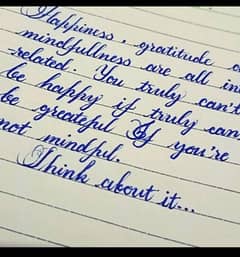 Happiness, gratitude a
mindfullness are all in
related. You truly can't
be happy if truly can
be greateful If you're
not mindful.
Think about it...